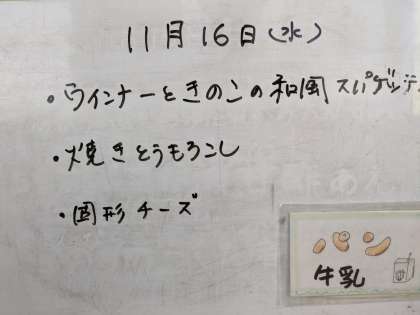 11月16日(水)
・ウインナーときのこの和風スパゲッテ
・焼きとうもろこし
・固形チーズ
牛乳